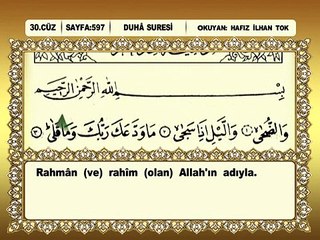 30.CÜZ SAYFA:597 DUHÂ SURESİ OKUYAN: HAFIZ İLHAN TOK
بِسْمِ اللّٰهِ الرَّحْمٰنِ الرَّحٖيمِ
وَالضُّحٰىۙ ١ وَالَّيْلِ اِذَا سَجٰىۙ ٢ مَا وَدَّعَكَ رَبُّكَ وَمَا قَلٰىۜ ٣
Rahmân (ve) rahîm (olan) Allah'ın adıyla.